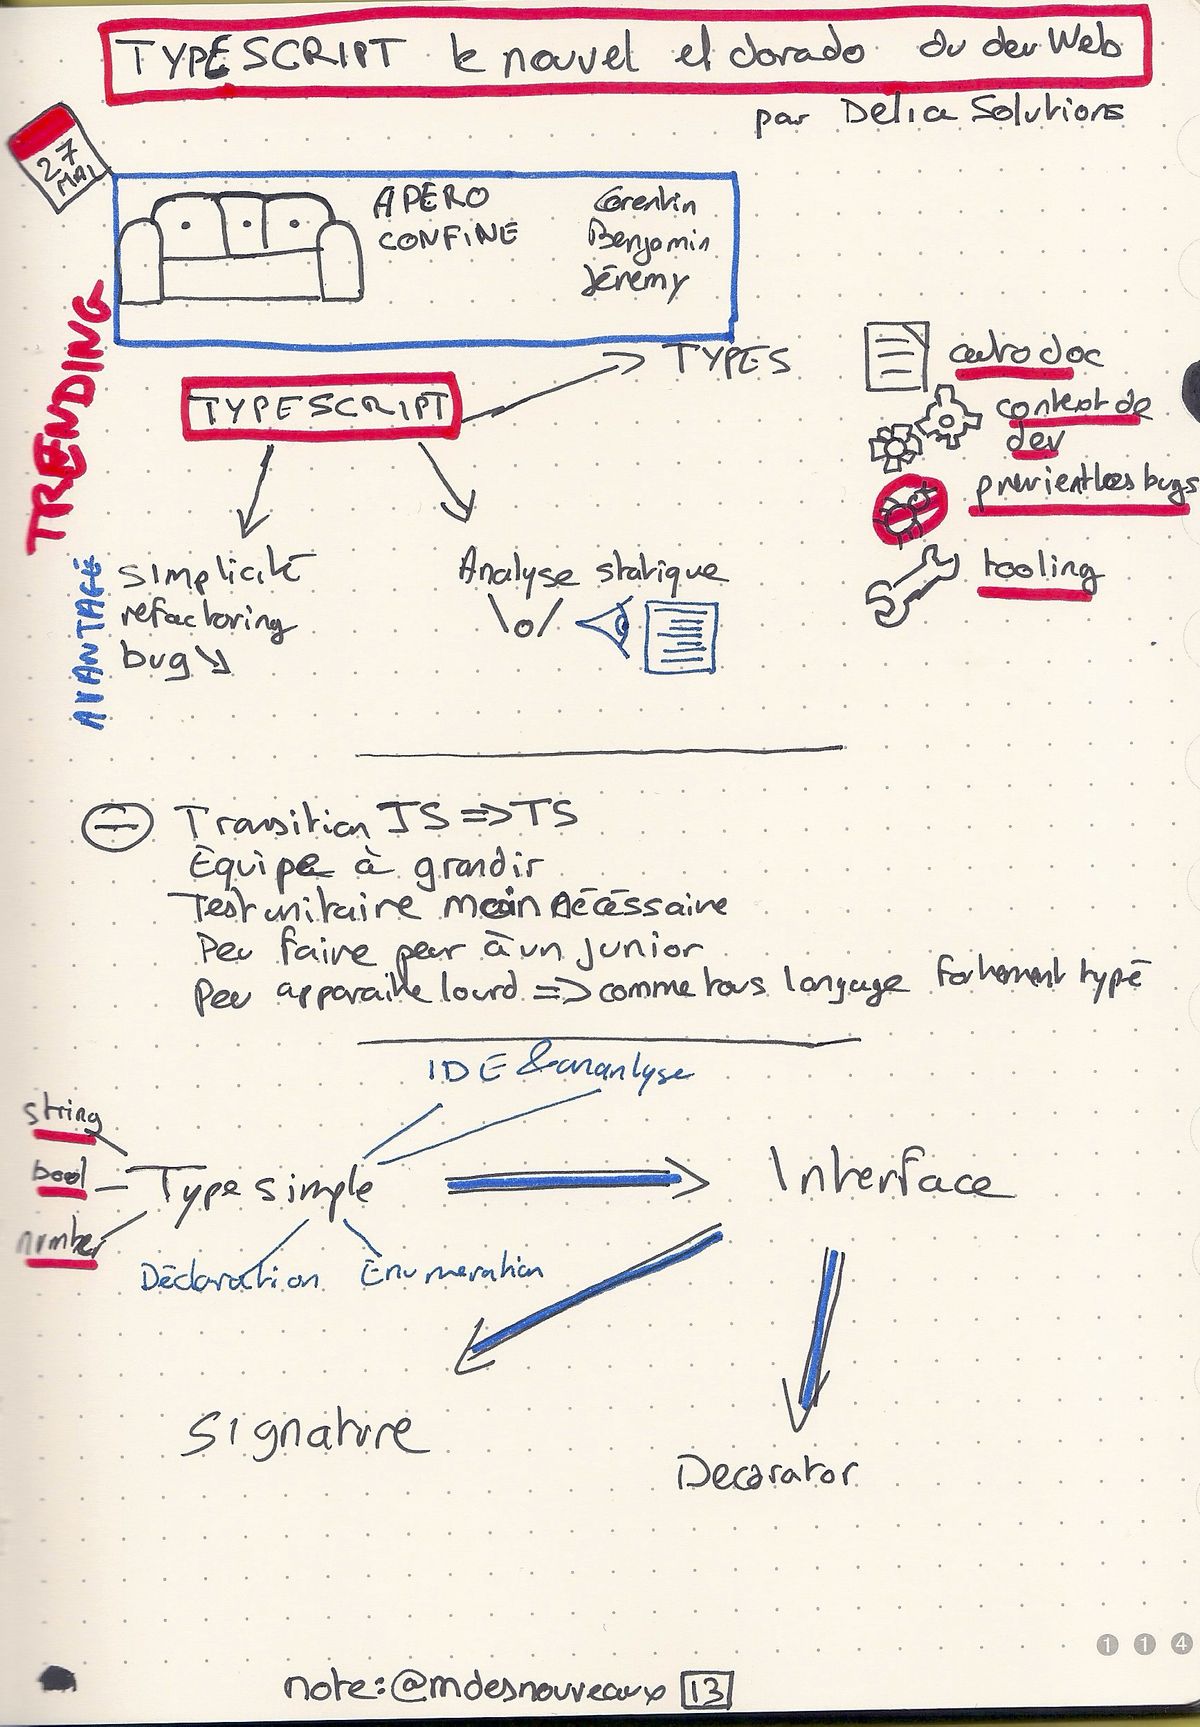 TYPESCRIPT le nouvel el dorado du dev Web
par Delia Solutions
27
MAI
APERO
CONFINE
Corentin
Benjamin
Jéremy
TRENDING
TYPESCRIPT
TYPES
auto doc
context de
dev
previent les bugs
tooling
AVANTAGE
Simplicité
refactoring
bug ↘
Analyse statique
\o/
Transition JS => TS
Equipe à grandir
Test unitaire moin nécéssaire
Peu faire peur à un junior
Peu apparaitre lourd => comme tous langage fortement typé
IDE & ananlyse
string
bool
number
Type simple
Interface
Déclaration
Enumeration
Signature
Decorator
114
note: @mdesnouveaux 13